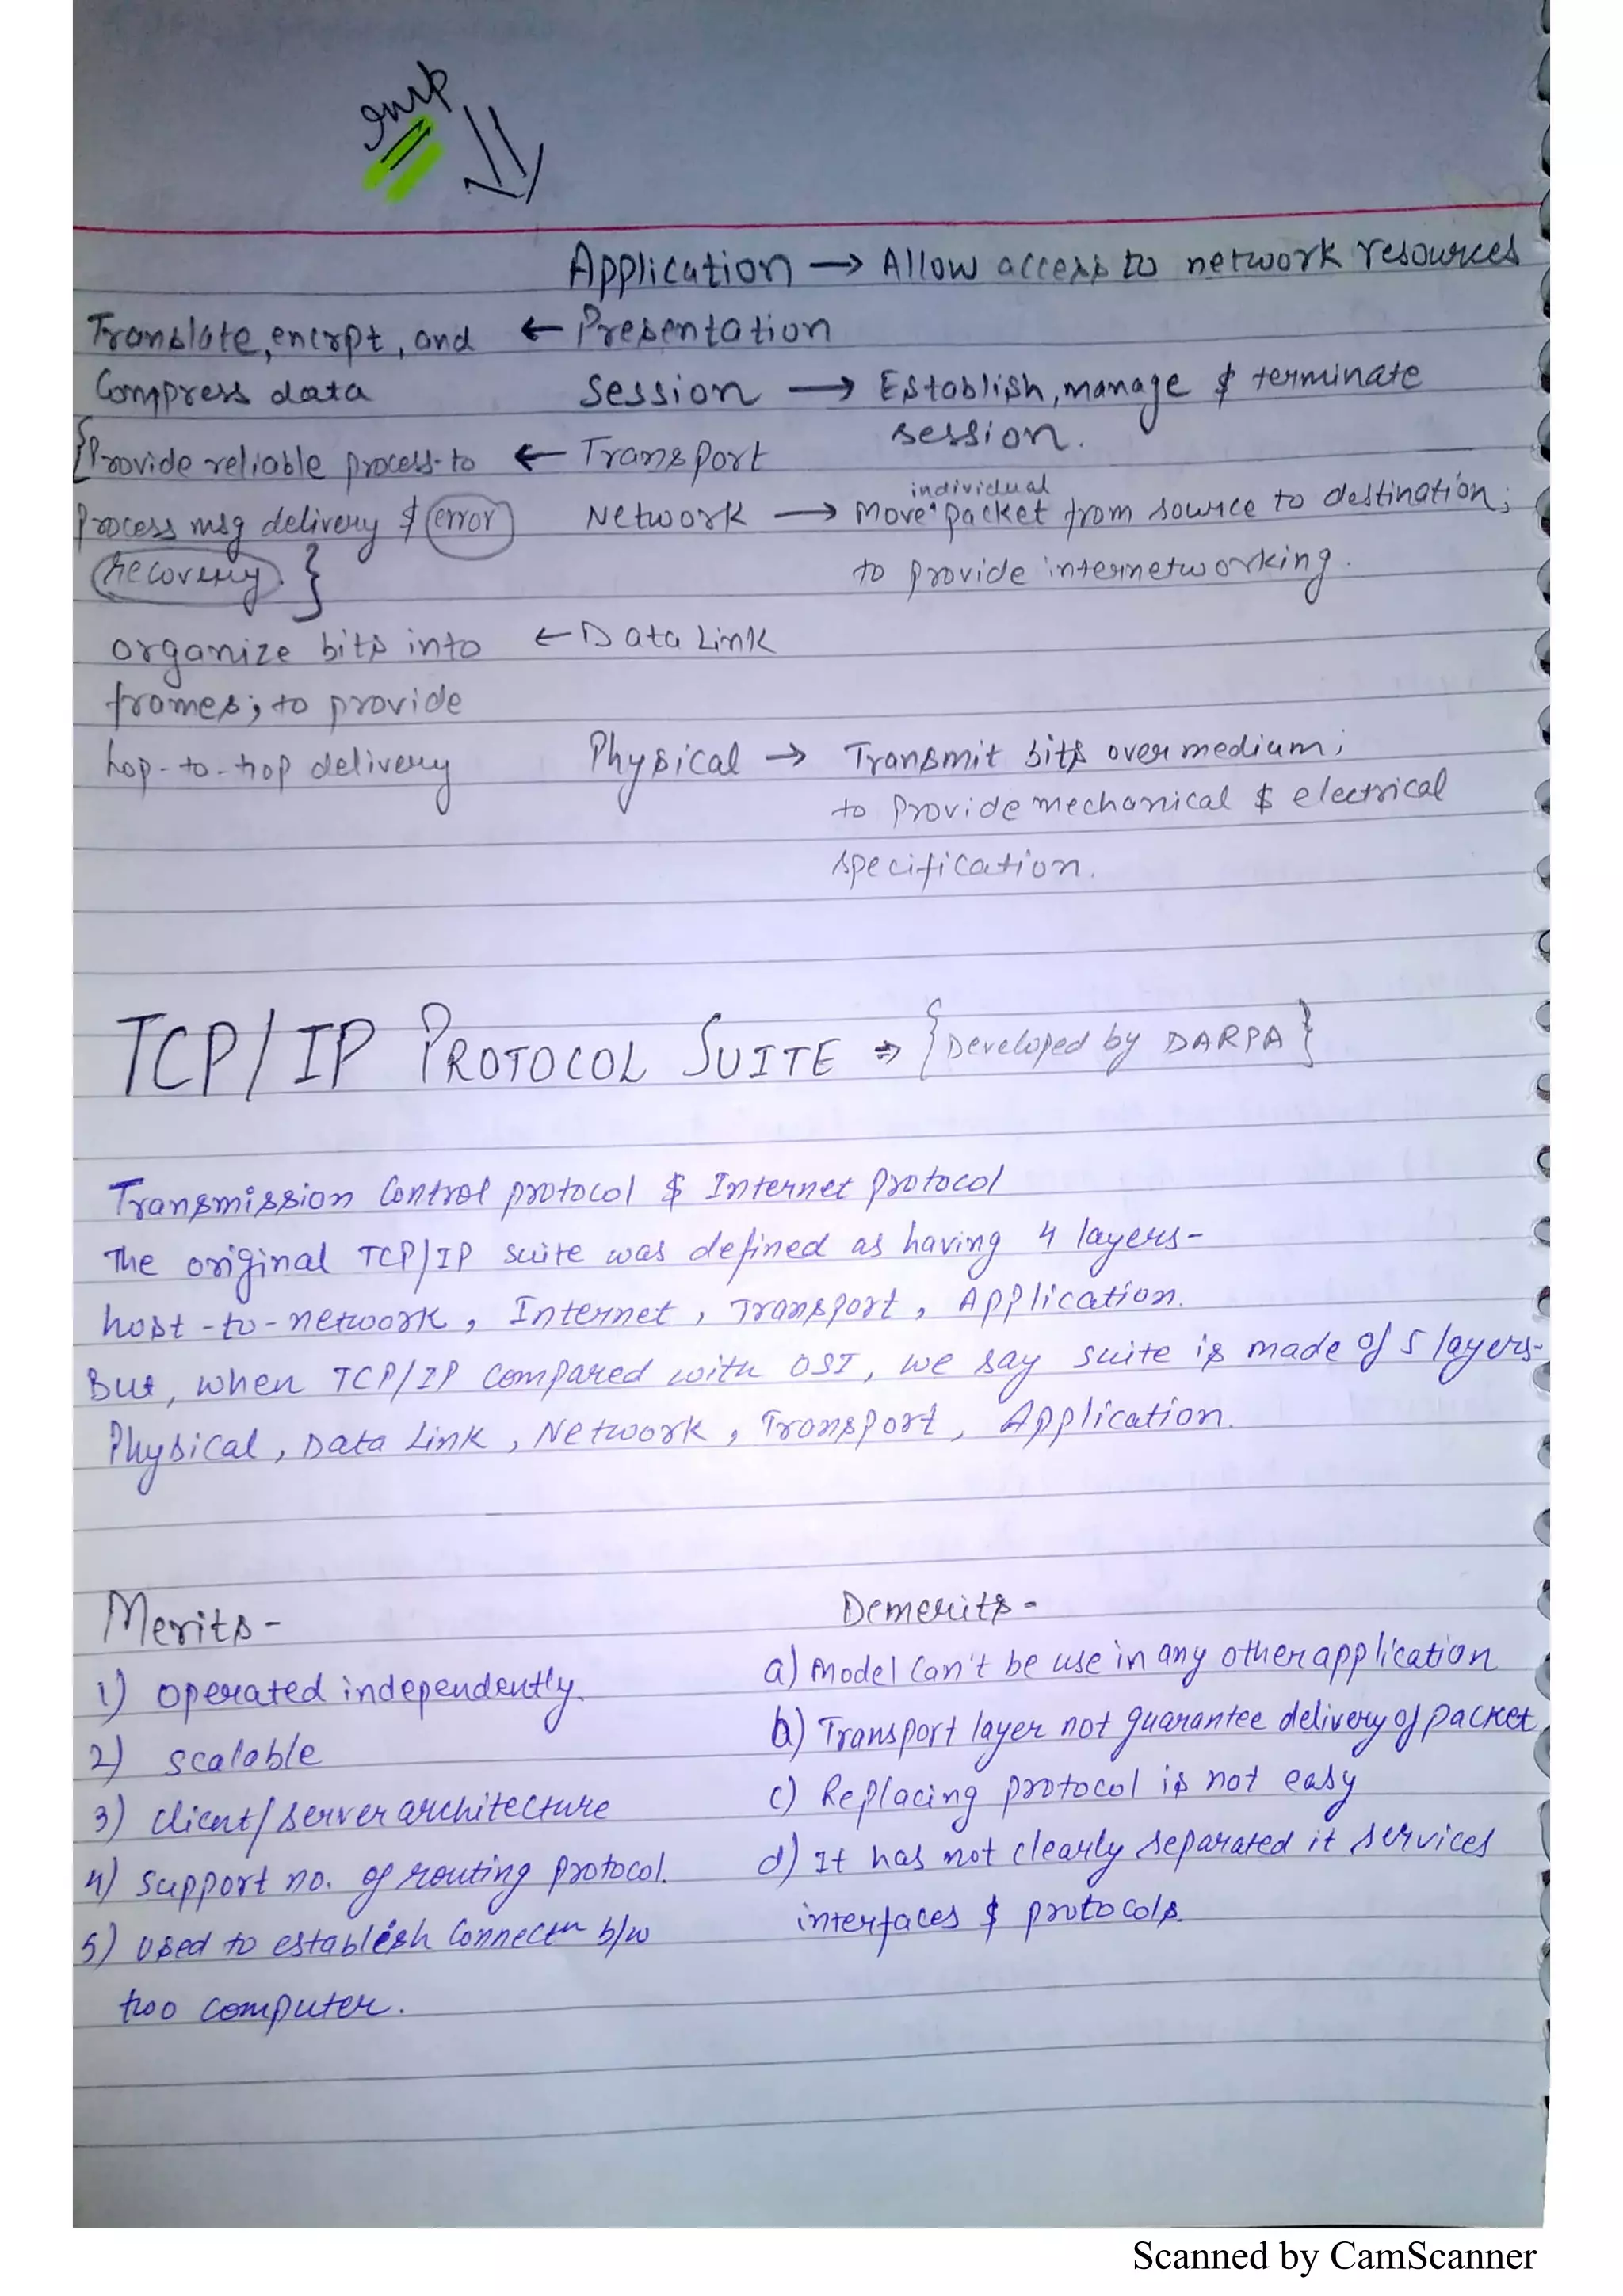 imp
Application → Allow access to network resources
Translate, encrpt, and ← Presentation
Compress data
Session → Establish, manage & terminate
session.
{Provide reliable process-to ← Transport
process msg delivery & error
recovery. }
Network → Move individual packet from source to destination;
to provide internetworking.
organize bits into ← Data Link
frames; to provide
hop-to-hop delivery
Physical → Transmit bits over medium;
to provide mechanical & electrical
specification.
TCP/IP PROTOCOL SUITE ⇒ {Developed by DARPA}
Transmission Control protocol & Internet protocol
The original TCP/IP suite was defined as having 4 layers-
host-to-network, Internet, Transport, Application.
But, when TCP/IP compared with OSI, we say suite is made of 5 layers-
Physical, Data Link, Network, Transport, Application.
Merits-
1) operated independently.
2) scalable
3) client/server architecture
4) Support no. of routing protocol.
5) Used to establish Connectn b/w
two computer.
Demerits-
a) Model can't be use in any other application
b) Transport layer not guarantee delivery of packet
c) Replacing protocol is not easy
d) It has not clearly separated it services
interfaces & protocols.
Scanned by CamScanner